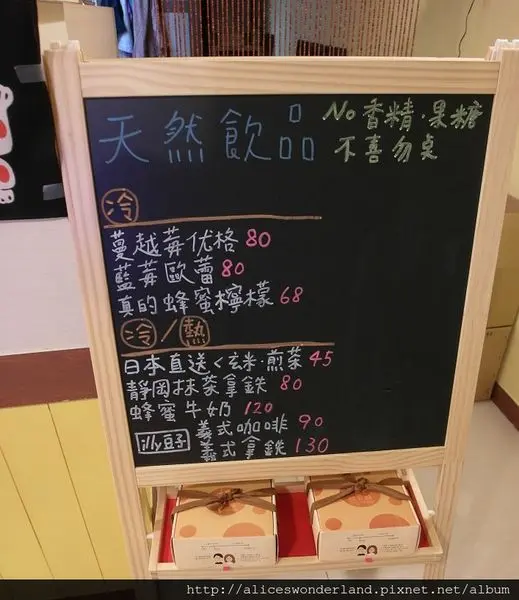 天然飲品
No香精·果糖
不喜勿桌
冷
蔓越莓优格 80
藍莓歐蕾 80
真的蜂蜜檸檬 68
冷/熱
日本直送く玄米·煎茶 45
靜岡抹茶拿鉄 80
蜂蜜牛奶 120
illy豆子
義式咖啡 90
義式拿鉄 130
http://aliceswonderland.pixnet.net/album